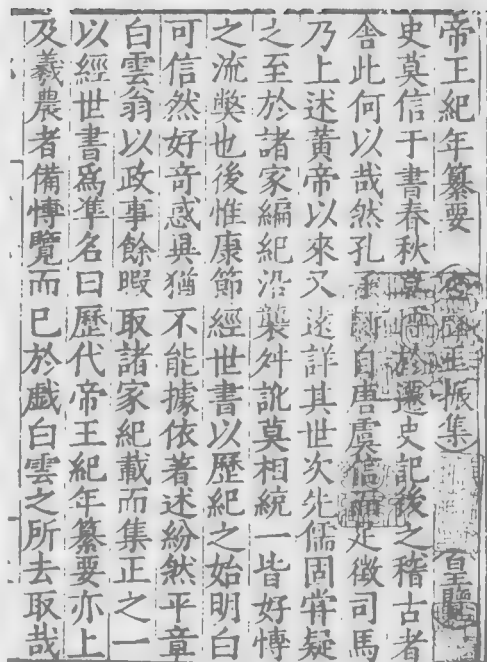 帝王紀年纂要 振集 皇覽
史莫信于書春秋莫於遷史記後之稽古者
舍此何以哉然孔子斷自唐虞信而足徵司馬
乃上述黃帝以來又遠詳其世次先儒固甞疑
之至於諸家編紀沿襲舛訛莫相統一皆好愽
之流弊也後惟康節經世書以歷紀之始明白
可信然好竒惑異猶不能據依著述紛然平章
白雲翁以政事餘暇取諸家紀載而集正之一
以經世書爲凖名曰歷代帝王紀年纂要亦上
及羲農者備愽覽而已於戲白雲之所去取哉